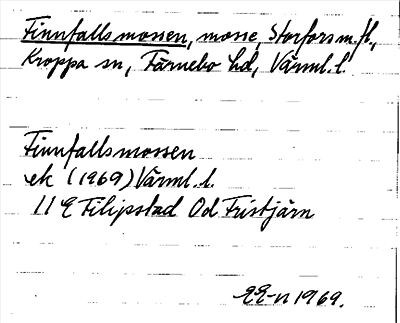 Finnfallsmossen, mosse, Storfors m.fl.,
Kroppa sn, Färnebo hd, Värml. l.
Finnfallsmossen
ek (1969) Värml. l.
11 E Filipstad Od Fristjärn
EE-n 1969.